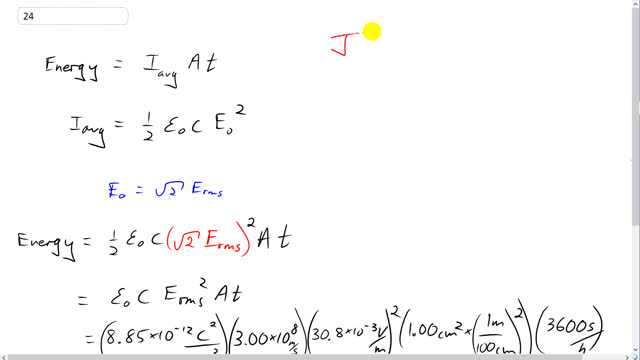 24
J
Energy = I_avg A t
I_avg = 1/2 ε₀ c E₀²
E₀ = √2 E_rms
Energy = 1/2 ε₀ c (√2 E_rms)² A t
= ε₀ c E_rms² A t
= (8.85×10⁻¹² C²/)(3.00×10⁸ m/s)(30.8×10⁻³ V/m)²(1.00cm² × (1m/100cm)²)(3600s/h)